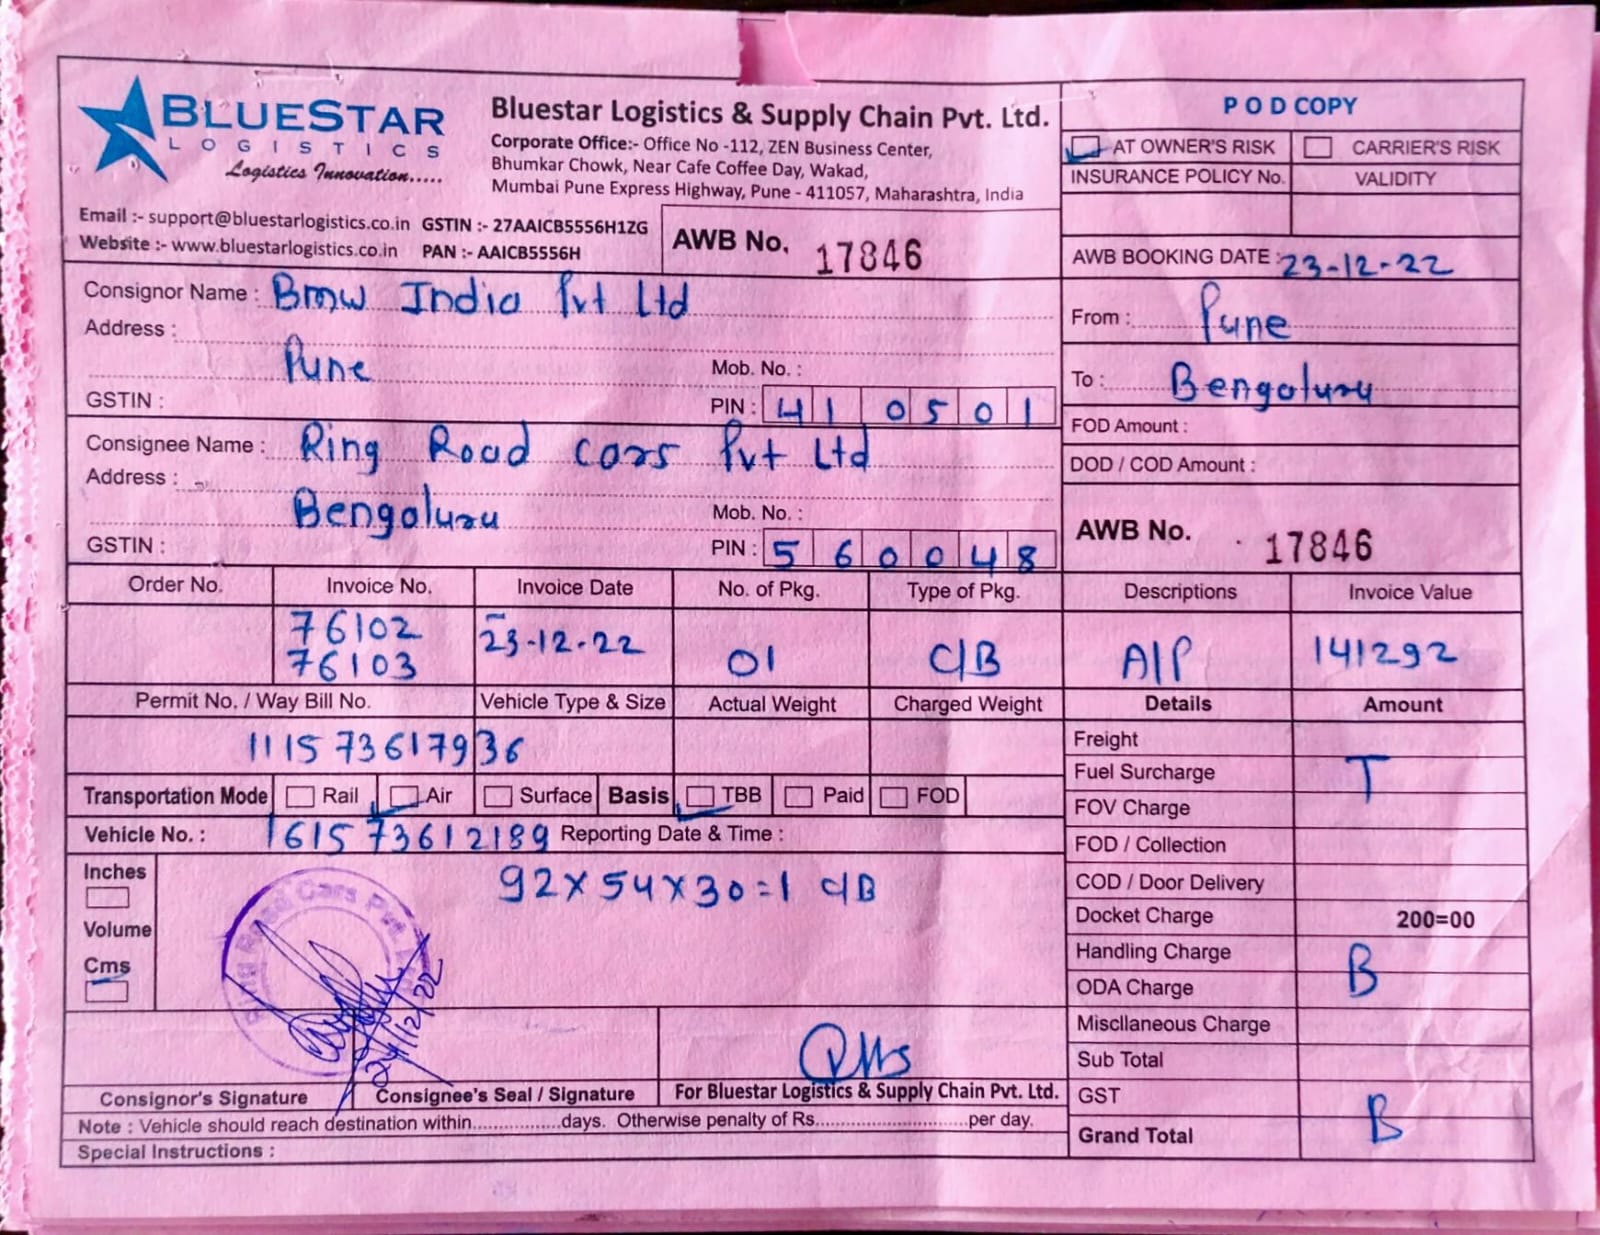 BLUESTAR
LOGISTICS
Logistics Innovation.....
Bluestar Logistics & Supply Chain Pvt. Ltd.
Corporate Office:- Office No -112, ZEN Business Center,
Bhumkar Chowk, Near Cafe Coffee Day, Wakad,
Mumbai Pune Express Highway, Pune - 411057, Maharashtra, India
Email :- support@bluestarlogistics.co.in GSTIN :- 27AAICB5556H1ZG
Website :- www.bluestarlogistics.co.in PAN :- AAICB5556H
AWB No. 17846
POD COPY
AT OWNER'S RISK CARRIER'S RISK
INSURANCE POLICY No. VALIDITY
AWB BOOKING DATE : 23-12-22
Consignor Name : Bmw India Pvt Ltd
Address :
Pune
Mob. No. :
GSTIN :
PIN : 410501
From : Pune
To : Bengaluru
FOD Amount :
DOD / COD Amount :
Consignee Name : Ring Road Cars Pvt Ltd
Address :
Bengaluru
Mob. No. :
GSTIN :
PIN : 560048
AWB No. 17846
Order No. Invoice No. Invoice Date No. of Pkg. Type of Pkg. Descriptions Invoice Value
76102
76103 23-12-22 01 C/B A/P 141292
Permit No. / Way Bill No. Vehicle Type & Size Actual Weight Charged Weight Details Amount
111573617936
Transportation Mode Rail Air Surface Basis TBB Paid FOD
Vehicle No. : 161573612189 Reporting Date & Time :
Inches
Volume
Cms
92x54x30=1 C/B
Freight
Fuel Surcharge T
FOV Charge
FOD / Collection
COD / Door Delivery
Docket Charge 200=00
Handling Charge
B
ODA Charge
Miscllaneous Charge
Sub Total
GST
B
Grand Total
Ring Road Cars Pvt.
24/12/22
Consignor's Signature Consignee's Seal / Signature For Bluestar Logistics & Supply Chain Pvt. Ltd.
Note : Vehicle should reach destination within.................days. Otherwise penalty of Rs.............................per day.
Special Instructions :